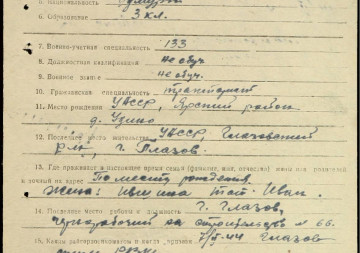 5. Национальность Удмурт
6. Образование 3 кл.
7. Военно-учетная специальность 133
8. Должностная квалификация не обуч.
9. Военное звание не обуч.
10. Гражданская специальность
11. Место рождения УАССР, Ярский район
д. Узино
12. Последнее место жительства УАССР, Глазовский
р-н, г. Глазов
13. Где проживает в настоящее время семья (фамилия, имя, отчество) жены или родителей
и точный их адрес По месту рождения
Жена: Ившина Тат. Иван.
14. Последнее место работы и должность г. Глазов,
чернорабочий на строительстве № 66.
15. Каким райвоенкоматом и когда призван 7/II-44 Глазов
РВК